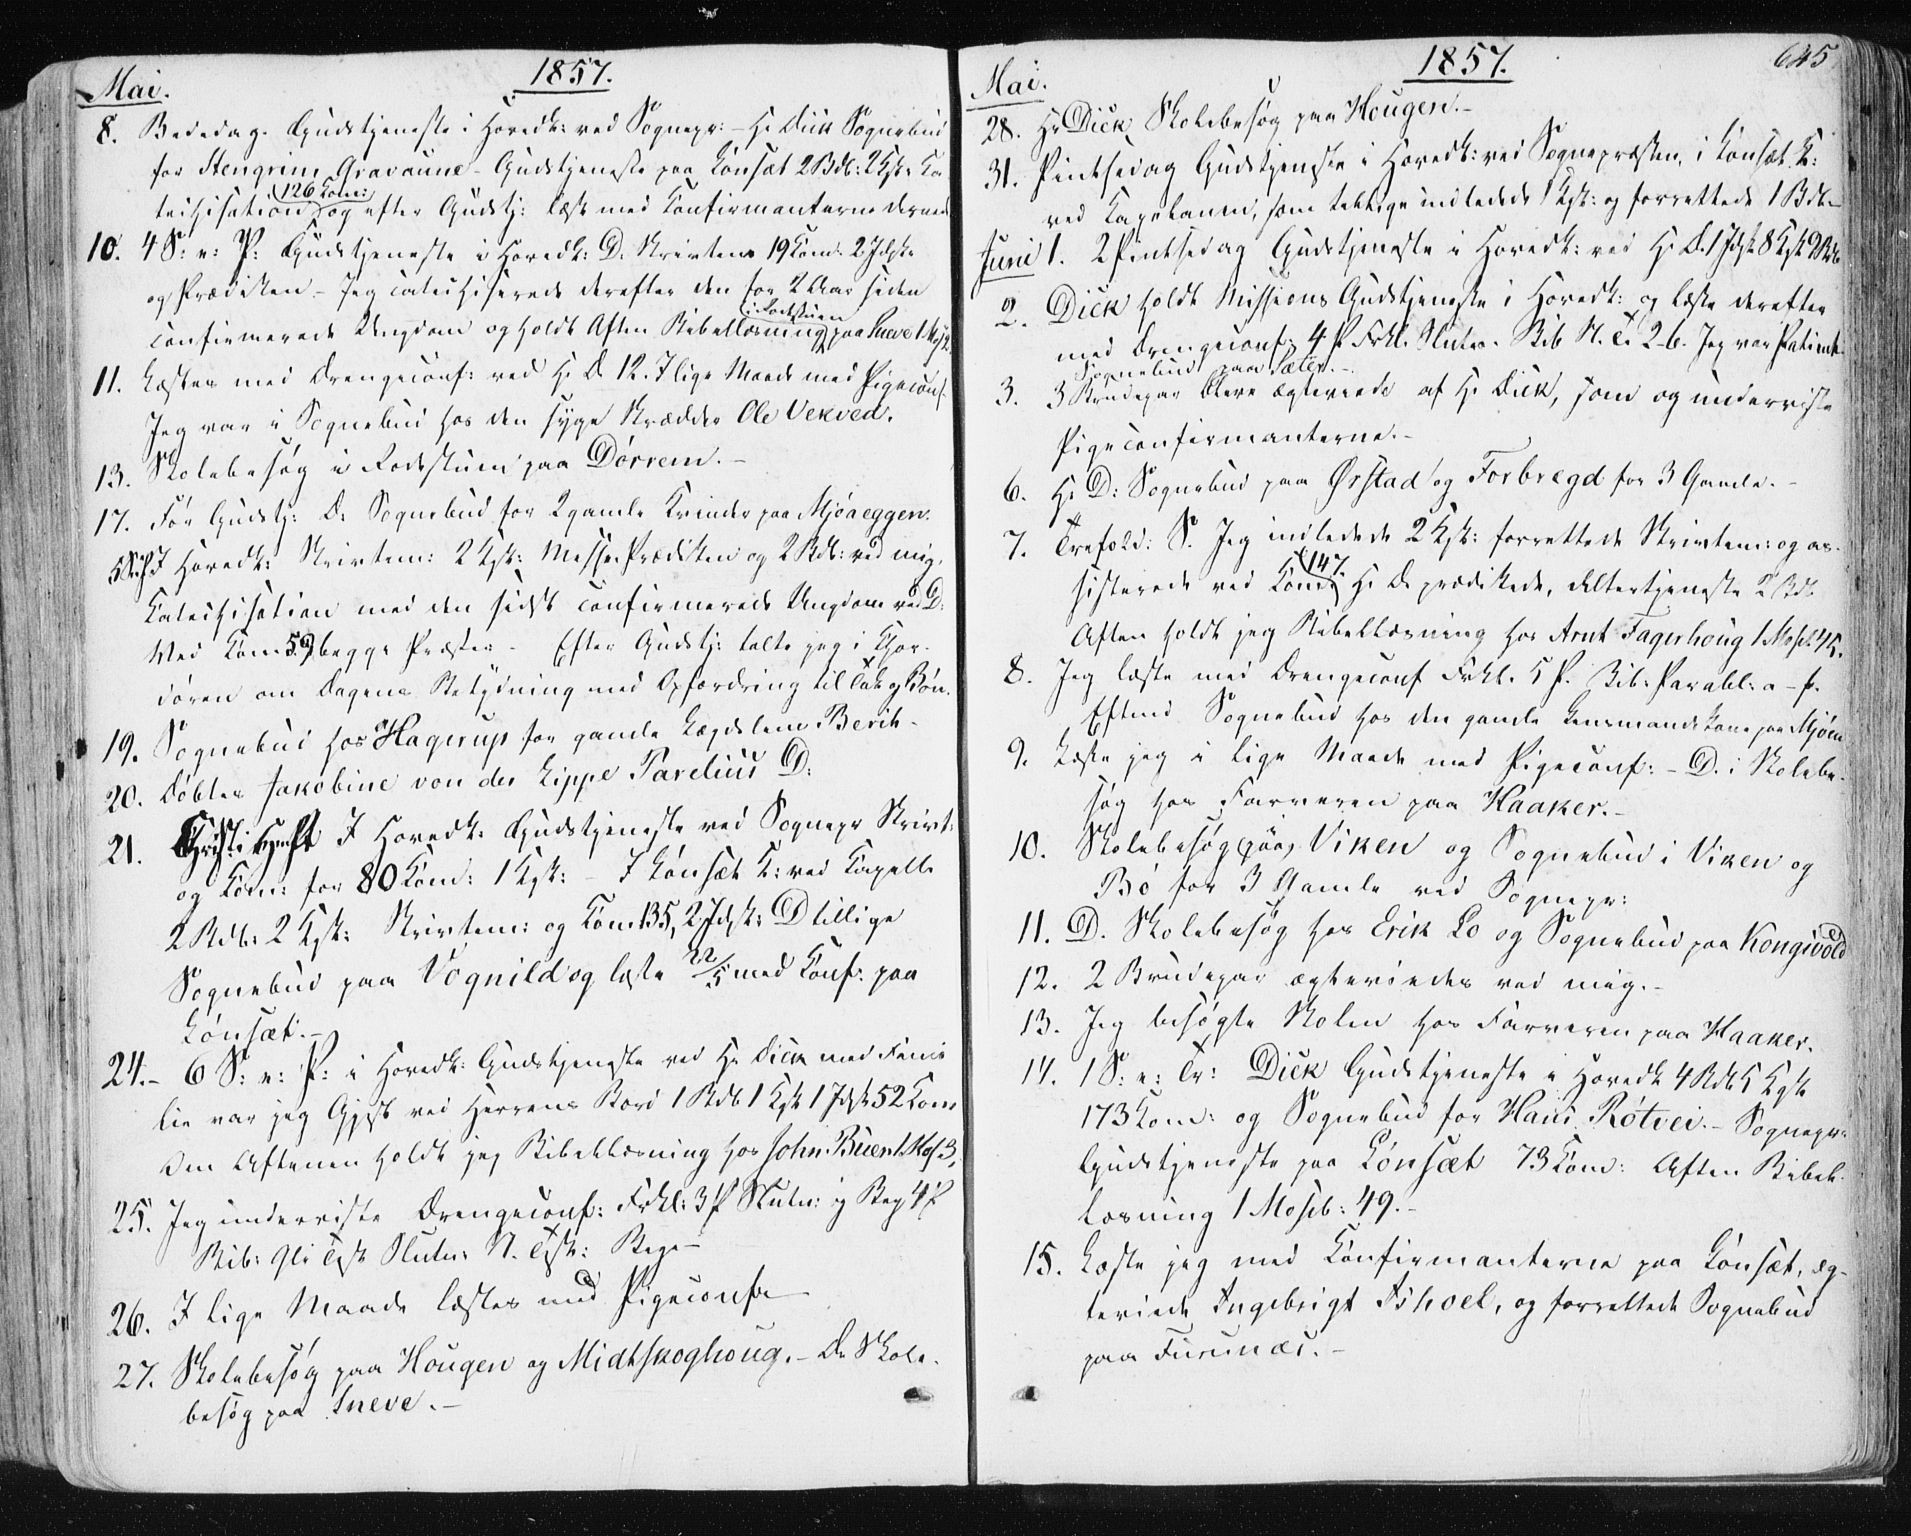 Mai.
1857.
8. Bededag. Gudstjeneste i Hovedk: ved Sognepr: - Hr Dick Sognebud
for Stengrim Gravaune - Gudstjeneste paa Lönsæt 2 Bdb: 2 Kgk: Ka
techisation (126 Kom:) og efter Gudstj: læst med Confirmanterne dernede
10. 4 S: e: P: Gudstjeneste i Hovedk: D. Skriftem 19 Kom: 2 Jdsk:
og Prædiken - Jeg catechiserede derefter den for 2 Aar siden
confirmerede Ungdom og holdt Aften Bibellæsning (i Rodstuen) paa Sneve 1 Mosb
11. Læstes med Drengeconf: ved Hr D. 12. I lige Maade med Pigeconf.
Jeg var i Sognebud hos den syge Skrædder Ole Vekved.
13. Skolebesøg i Rodestuen paa Dørrem. -
17. Før Gudstj: D: Sognebud for 2 gamle Kvinder paa Mjøaeggen.
5 S: e: P: I Hovedk: Skriftem: 2 Kgk: Messe Prædiken og 2 Bdb: ved mig,
Katechisation med den sidst confirmerede Ungdom ved D:
Ved Kom 59) begge Præster - Efter Gudstj: talte jeg i Chor-
døren om Dagens Betydning med Opfordring til Tak og Bøn.
19. Sognebud hos Hagerup for gamle Lægdslem Berith -
20. Döbtes Jakobine von der Lippe Parelius D:
21. Christi Hmfst I Hovedk: Gudstjeneste ved Sognepr Skrivt:
og Kom: for 80 Kom: 1 Kgk: - I Lönsæt K: ved Kapell:
2 Bdb: 2 Kgk: Skriftem: og Kom 135, 2 Jdsk: D tillige
Sognebud paa Vognild og læste 22/5 med Conf: paa
Lönsæt. -
24. - 6 S: e: P: i Hovedk: Gudstjeneste ved Hr Dick med Fami
lie var jeg Gjest ved Herrens Bord 1 Bdb 1 Kgk 1 Jdsk 52 Kom
Om Aftenen holdt jeg Bibellæsning hos John Büen 1 Mos 3,
25. Jeg underviste Drengeconf: Frkl: 3 P Slutn: og Beg 4 P
Bib: Gl: Test Slutn: N. Test: Beg: -
26. I lige Maade læstes med Pigeconf:
27. Skolebesøg paa Hougen og Midtskoghoug. - D: Skole-
besøg paa Sneve. -
Mai.
1857.
645
28. Hr Dick Skolebesøg paa Hougen. -
31. Pintsedag Gudstjeneste i Hovedk: ved Sognepræsten, i Lönsæt K:
ved Kapellanen, som tillige indledede 1 Kgk: og forrettede 1 Bdb -
Juni 1. 2 Pintsedag Gudstjeneste i Hovedk: ved Hr D. 1 Jdsk 8 Kgk 2 Bdb
2. Dick holdt Missions Gudstjeneste i Hovedk: og læste derefter
med Drengeconf: 4 P Frkl. Slutn. Bib N. T. 2-6. Jeg var Patient.
Sognebud paa Sæter. -
3. 3 Brudepar bleve ægteviede af Hr Dick, som og underviste
Pigeconfirmanterne. -
6. Hr D: Sognebud paa Ørstad og Forbregd for 3 Gamle. -
7. Trefold: S. Jeg indledede 2 Kgk: forrettede Skriftem: og as-
sisterede ved Kom: (147) Hr D. prædikede, Altertjeneste 2 Bdb
Aften holdt jeg Bibellæsning hos Arnt Fagerhoug 1 Mosb. 45.
8. Jeg læste med Drengeconf Frkl. 5 P. Bib: Parabl: a - f.
Eftmd Sognebud hos den gamle Lensmandskone paa Mjöen
9. Læste jeg i lige Maade med Pigeconf: - D. i Skolebe-
søg hos Farveren paa Haaker. -
10. Skolebesøg paa Viken og Sognebud i Viken og
Bö for 3 Gamle ved Sognepr:
11. D. Skolebesøg hos Erik Lo og Sognebud paa Kongsvold
12. 2 Brudepar ægteviedes ved mig. -
13. Jeg besøgte Skolen hos Farveren paa Haaker.
14. 1 S: e: Tr: Dick Gudstjeneste i Hovedk 4 Bdb 5 Kgk
173 Kom: og Sognebud for Hans Rötvei. - Sognepr:
Gudstjeneste paa Lönsæt 73 Kom: Aften Bibel-
læsning 1 Mosb: 49. -
15. Læste jeg med Confirmanterne paa Lönsæt, æg-
teviede Ingebrigt Ishoel, og forrettede Sognebud
paa Furunæs. -